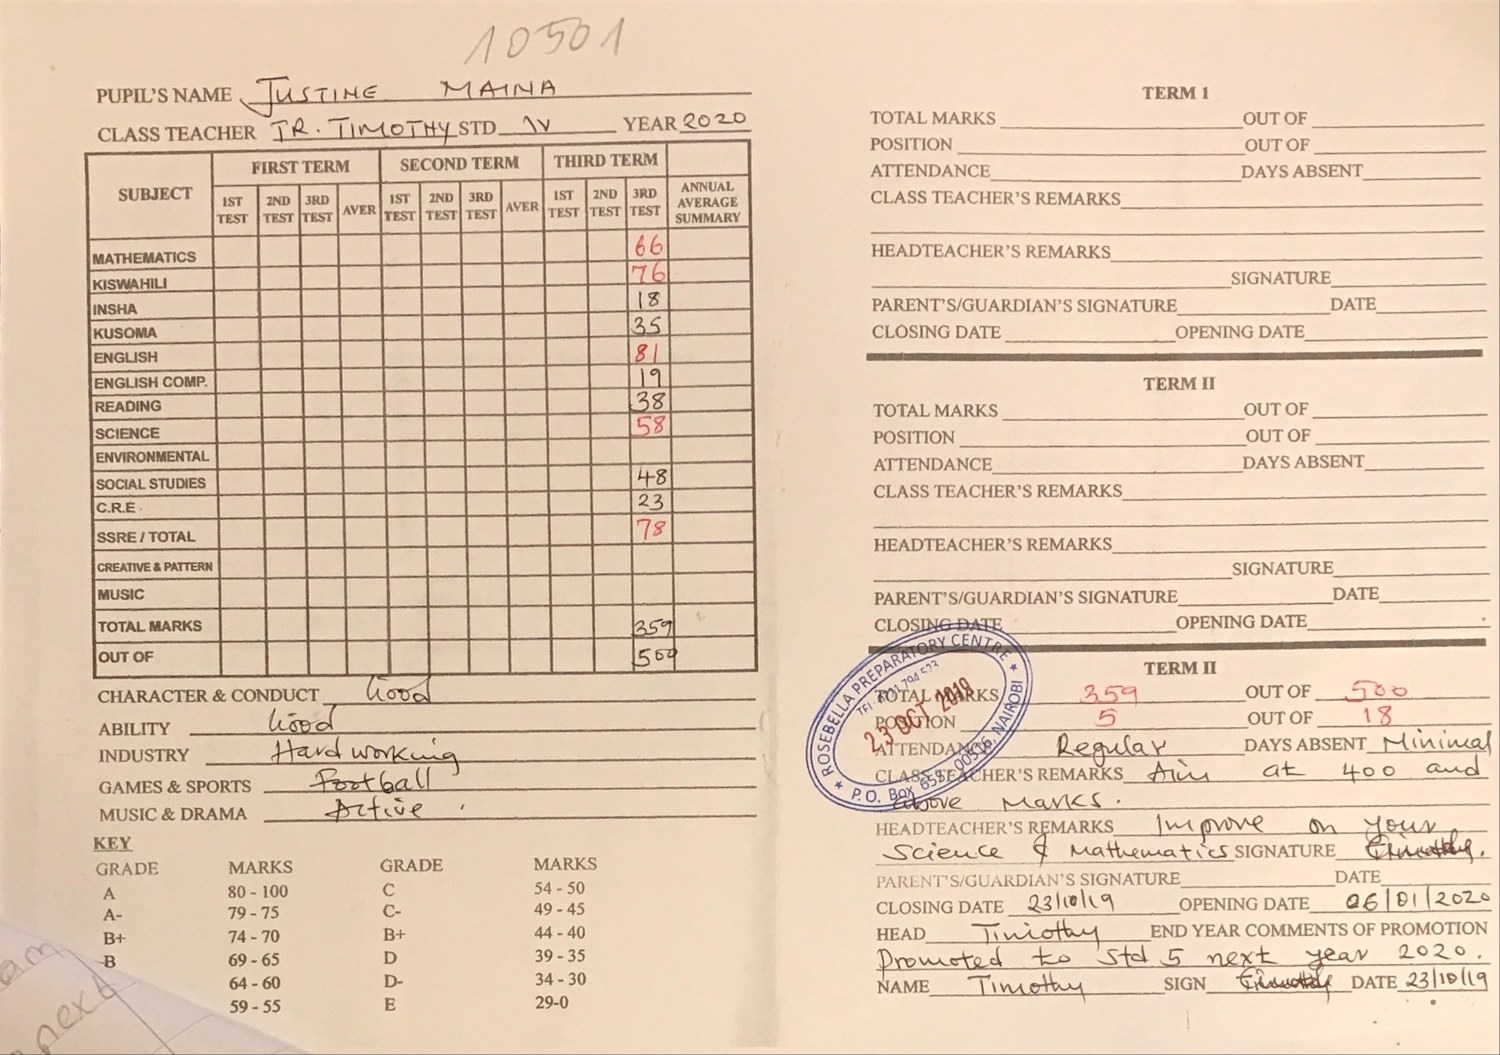 10501
PUPIL'S NAME JUSTINE MAINA
CLASS TEACHER TR. TIMOTHY STD IV YEAR 2020
SUBJECT FIRST TERM SECOND TERM THIRD TERM
1ST TEST 2ND TEST 3RD TEST AVER 1ST TEST 2ND TEST 3RD TEST AVER 1ST TEST 2ND TEST 3RD TEST ANNUAL AVERAGE SUMMARY
MATHEMATICS 66
KISWAHILI 76
INSHA 18
KUSOMA 35
ENGLISH 81
ENGLISH COMP. 19
READING 38
SCIENCE 58
ENVIRONMENTAL
SOCIAL STUDIES 48
C.R.E 23
SSRE / TOTAL 78
CREATIVE & PATTERN
MUSIC
TOTAL MARKS 359
OUT OF 500
CHARACTER & CONDUCT Good
ABILITY Good
INDUSTRY Hard working
GAMES & SPORTS Football
MUSIC & DRAMA Active
KEY
GRADE MARKS GRADE MARKS
A 80 - 100 C 54 - 50
A- 79 - 75 C- 49 - 45
B+ 74 - 70 B+ 44 - 40
B 69 - 65 D 39 - 35
64 - 60 D- 34 - 30
59 - 55 E 29-0
TERM 1
TOTAL MARKS OUT OF
POSITION OUT OF
ATTENDANCE DAYS ABSENT
CLASS TEACHER'S REMARKS
HEADTEACHER'S REMARKS
SIGNATURE
PARENT'S/GUARDIAN'S SIGNATURE DATE
CLOSING DATE OPENING DATE
TERM II
TOTAL MARKS OUT OF
POSITION OUT OF
ATTENDANCE DAYS ABSENT
CLASS TEACHER'S REMARKS
HEADTEACHER'S REMARKS
SIGNATURE
PARENT'S/GUARDIAN'S SIGNATURE DATE
CLOSING DATE OPENING DATE
TERM II
TOTAL MARKS 359 OUT OF 500
POSITION 5 OUT OF 18
ATTENDANCE Regular DAYS ABSENT Minimal
CLASS TEACHER'S REMARKS Aim at 400 and
above marks.
HEADTEACHER'S REMARKS Improve on your
Science & Mathematics SIGNATURE
PARENT'S/GUARDIAN'S SIGNATURE DATE
CLOSING DATE 23/10/19 OPENING DATE 06/01/2020
HEAD Timothy END YEAR COMMENTS OF PROMOTION
Promoted to Std 5 next year 2020.
NAME Timothy SIGN DATE 23/10/19
ROSEBELLA PREPARATORY CENTRE
23 OCT 2019
P.O. Box NAIROBI
next